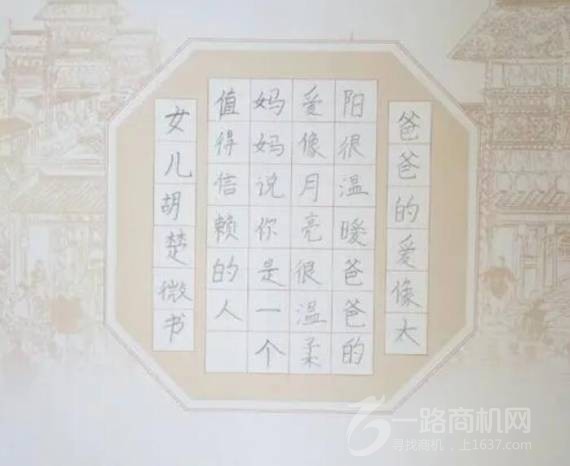 爸爸的爱像太
阳很温暖爸爸的
爱像月亮很温柔
妈妈说你是一个
值得信赖的人
女儿胡楚微书
一路商机网
寻找商机,上1637.com